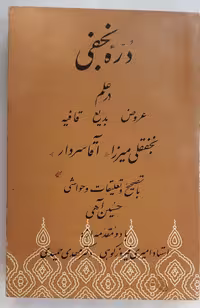 درهٔ نجفی
در علم
عروض بدیع قافیه
نجفقلی میرزا آقا سردار
با تصحیح و تعلیقات و حواشی
حسین آهی
با دو مقدمه از:
استاد امیری فیروزکوهی دکتر مهدی حمیدی